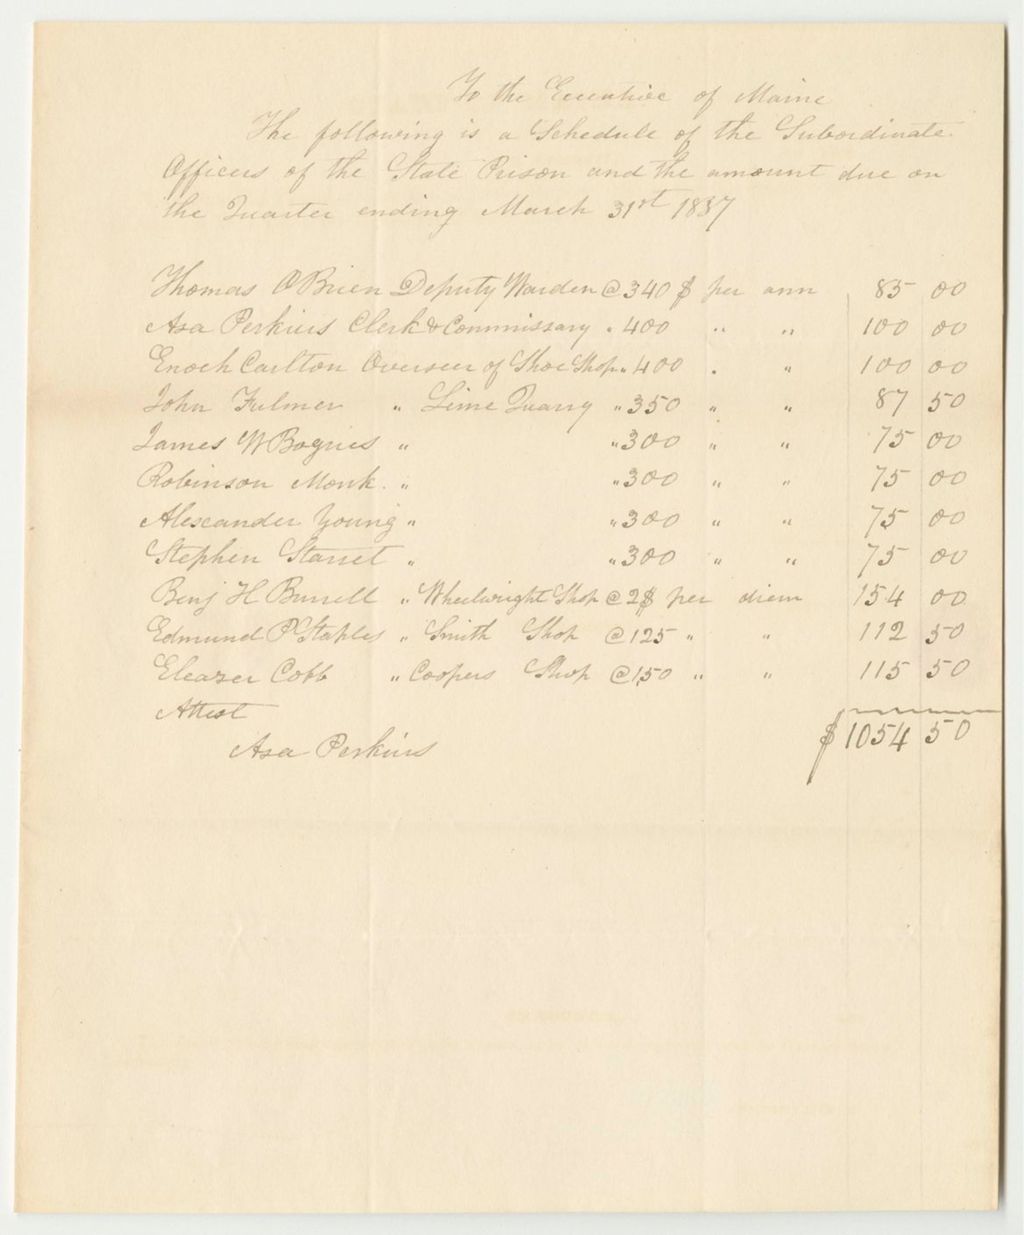 To the Executive of Maine
The following is a Schedule of the Subordinate
Officers of the State Prison and the amount due on
the Quarter ending March 31st 1837
Thomas O'Brien Deputy Warden @ 340 $ per ann 85 00
Asa Perkins Clerk & Commissary " 400 " " 100 00
Enoch Carlton Overseer of Shoe Shop " 400 " " 100 00
John Fulmer " Lime Quarry " 350 " " 87 50
James W " " 300 " " 75 00
Robinson Monk " " 300 " " 75 00
Alexander Young " " 300 " " 75 00
Stephen Starret " " 300 " " 75 00
Benj H Burrell " Wheelwright Shop @ 2$ per diem 154 00
Edmund P Staples " Smith Shop @ 125 " " 112 50
Eleazer Cobb " Coopers Shop @ 1,50 " " 115 50
Attest $ 1054 50
Asa Perkins